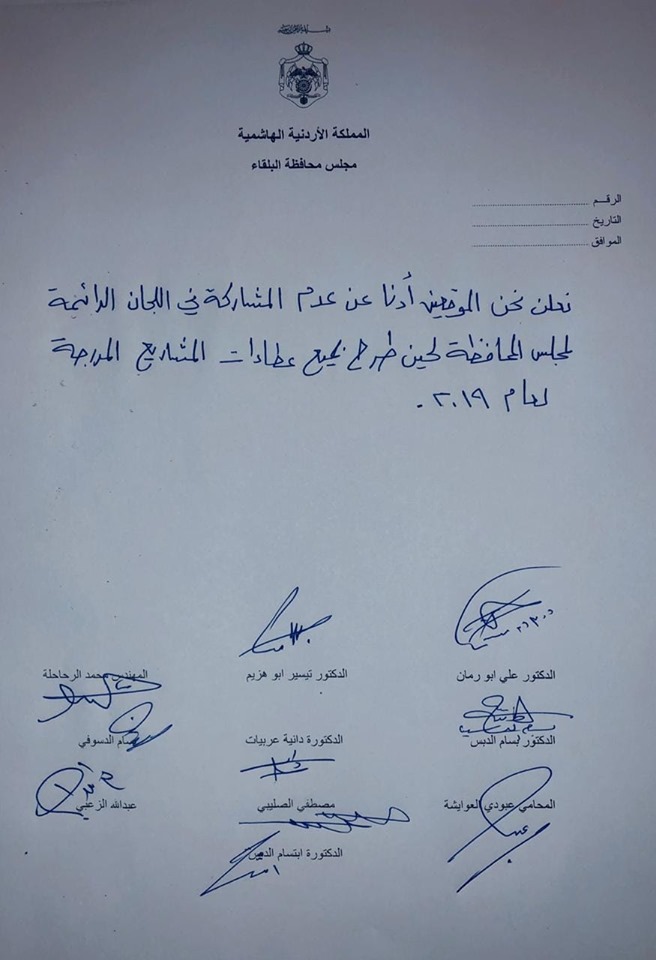 المملكة الأردنية الهاشمية
مجلس محافظة البلقاء
الرقـم
التاريخ
الموافق
نعلن نحن الموقعين أدنا عن عدم المشاركة في اللجان الدائمة
لمجلس المحافظة لحين طرح جميع عطاءات المشاريع المدرجة
لعام ٢٠١٩.
الدكتور علي ابو رمان الدكتور تيسير ابو هزيم المهندس محمد الرحاحلة
الدكتور بسام الدبس الدكتورة دانية عربيات الدسوقي
المحامي عبودي العوايشة مصطفى الصليبي عبدالله الزعبي
الدكتورة ابتسام